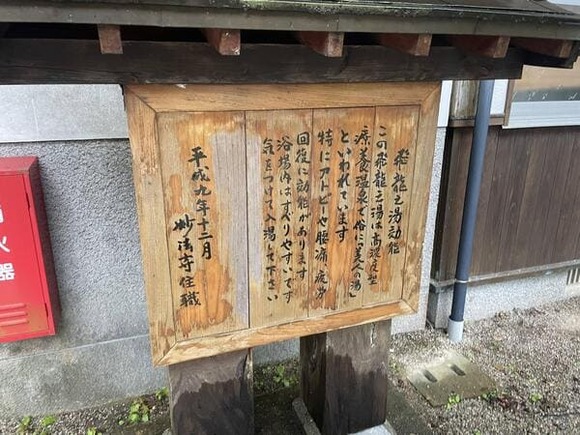 飛龍之湯効能
この飛龍之湯は高濃度型
療養温泉で俗に「美人の湯」
といわれています
特にアトピーや腰痛、疲労
回復に効能があります
浴場内はすべりやすいです
気をつけて入湯して下さい
平成九年十二月
妙法寺住職
消火器